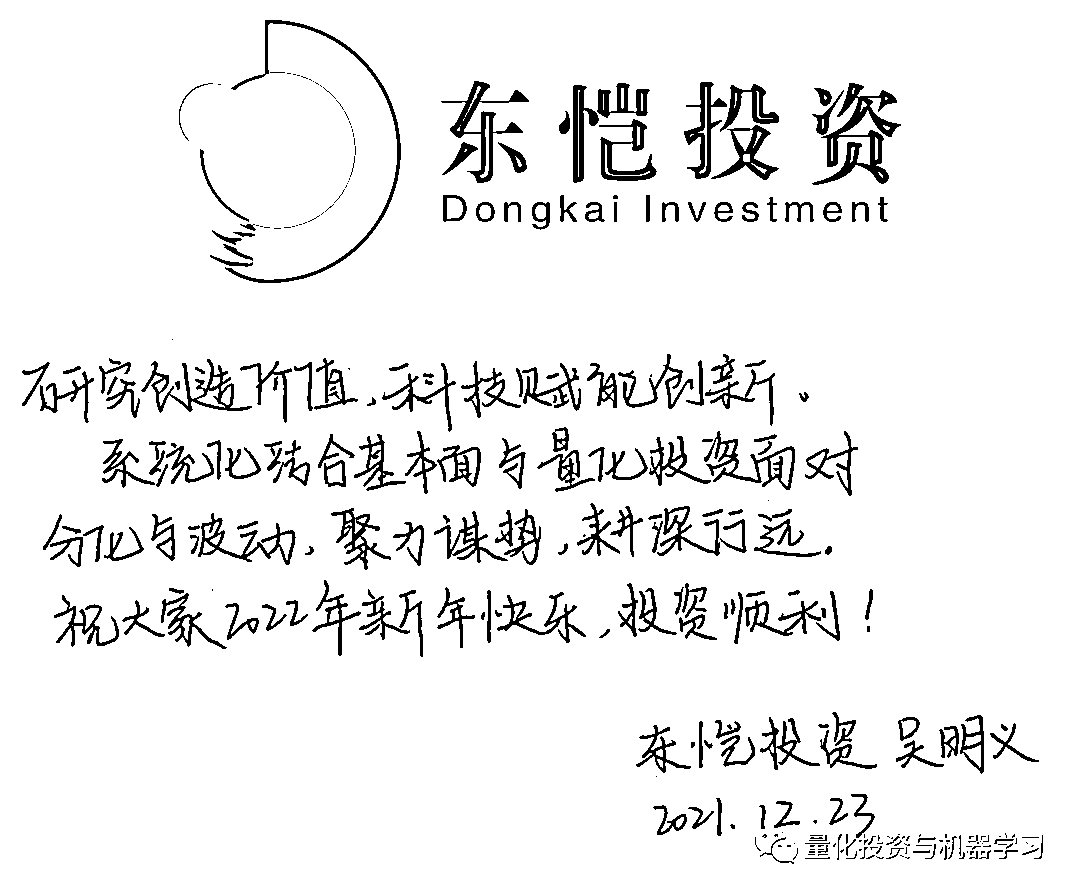 东恺投资
Dongkai Investment
研究创造价值,科技赋能创新。
系统化结合基本面与量化投资面对
分化与波动,聚力谋势,耕深行远.
祝大家2022年新年快乐,投资顺利!
东恺投资 吴明义
2021.12.23
量化投资与机器学习